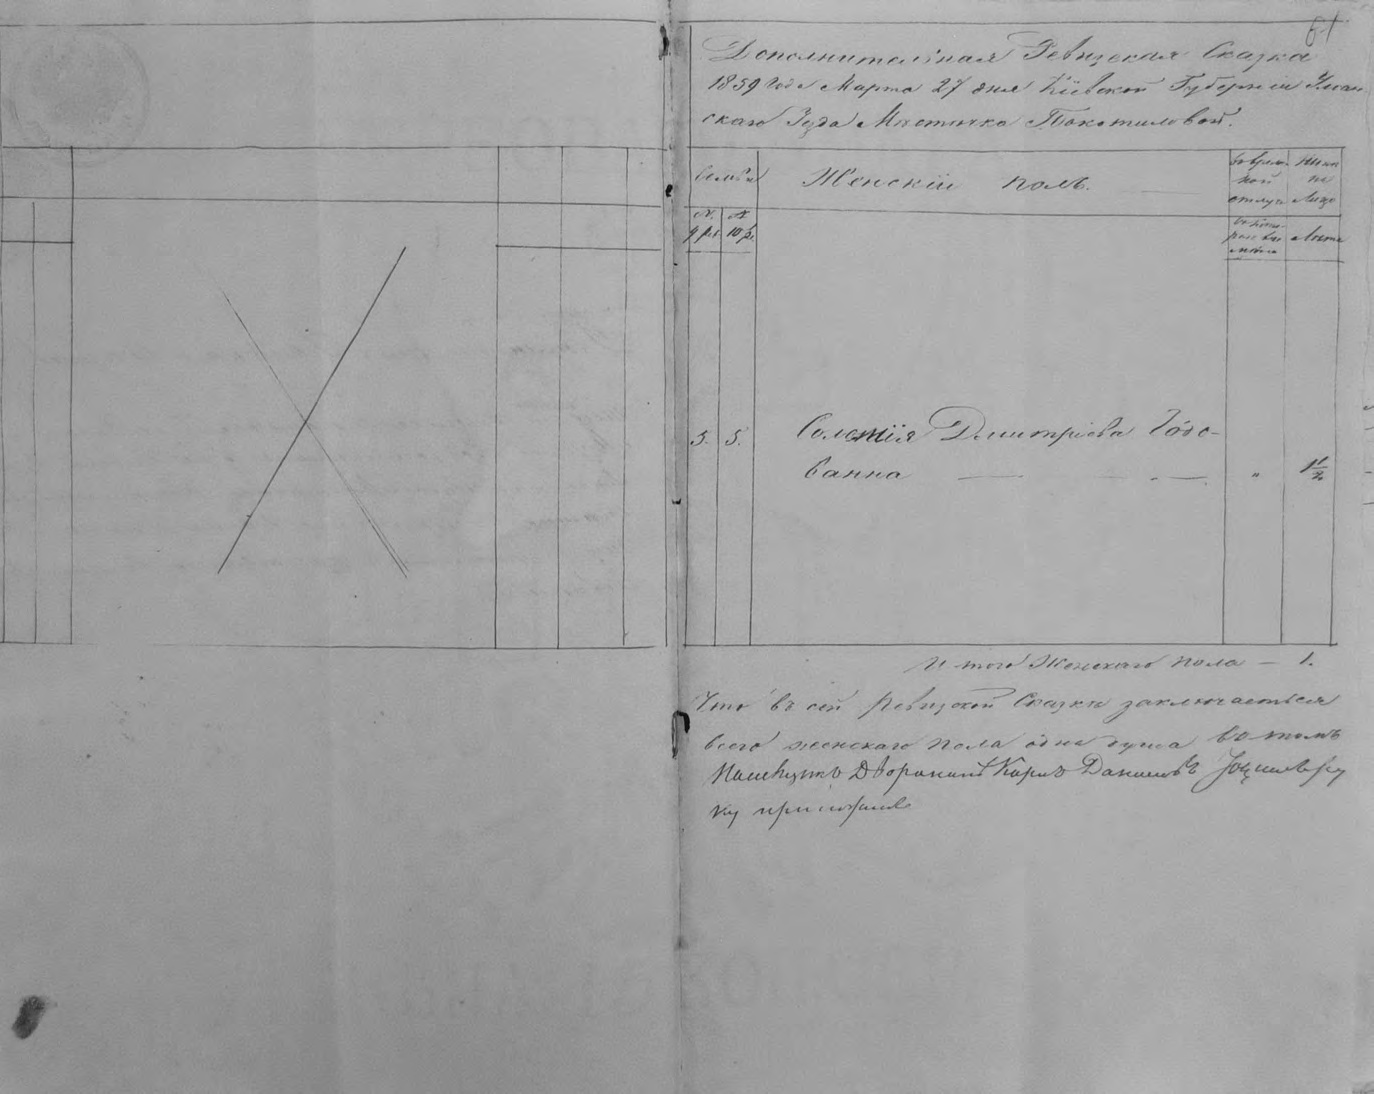 61
Дополнительная Ревизская Сказка
1859 года Марта 27 дня Кіевской Губерніи Уман
скаго Уезда Местечка Покотиловой.
Семьи
Женскій полъ.
во време
ной
отлуч
Ныне
на
Лицо
№
9 рев
№
10 ре.
лета
5. 5.
Дмитріева Годо-
ванна
" 1 1/2
Итого Женскаго пола — 1.
Что въ сей Ревизской Сказке заключаеться
всего женскаго пола одна душа въ томъ
Дворянинъ Карлъ
ку приложилъ